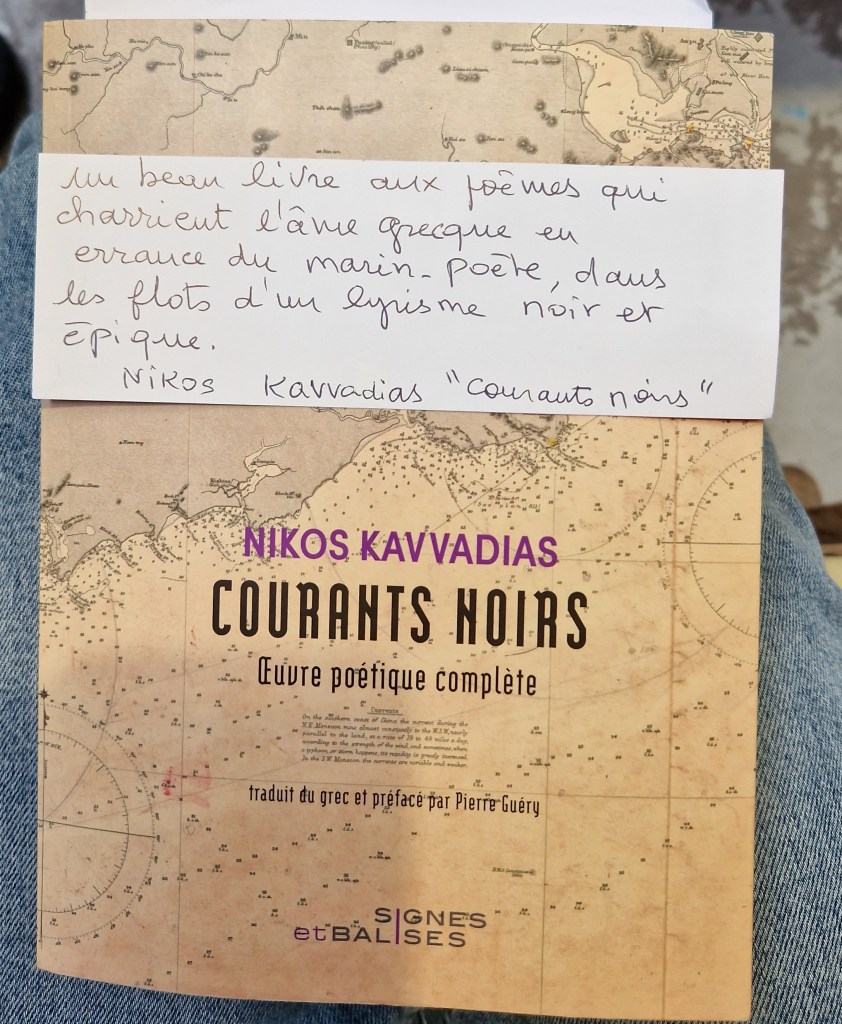 un beau livre aux poèmes qui
charrient l'âme grecque en
errance du marin-poète, dans
les flots d'un lyrisme noir et
épique.
Nikos Kavvadias "Courants noirs"
NIKOS KAVVADIAS
COURANTS NOIRS
Œuvre poétique complète
Currents
On the southern coast of China the current during the
N.E. Monsoon runs almost constantly to the W.S.W. nearly
parallel to the land, at a rate of
according to the strength of the wind, and sometimes, when
a typhoon or storm happens, its rapidity is greatly increased.
In the S.W. Monsoon the currents are variable and weaker.
traduit du grec et préfacé par Pierre Guéry
SIGNES
etBALISES